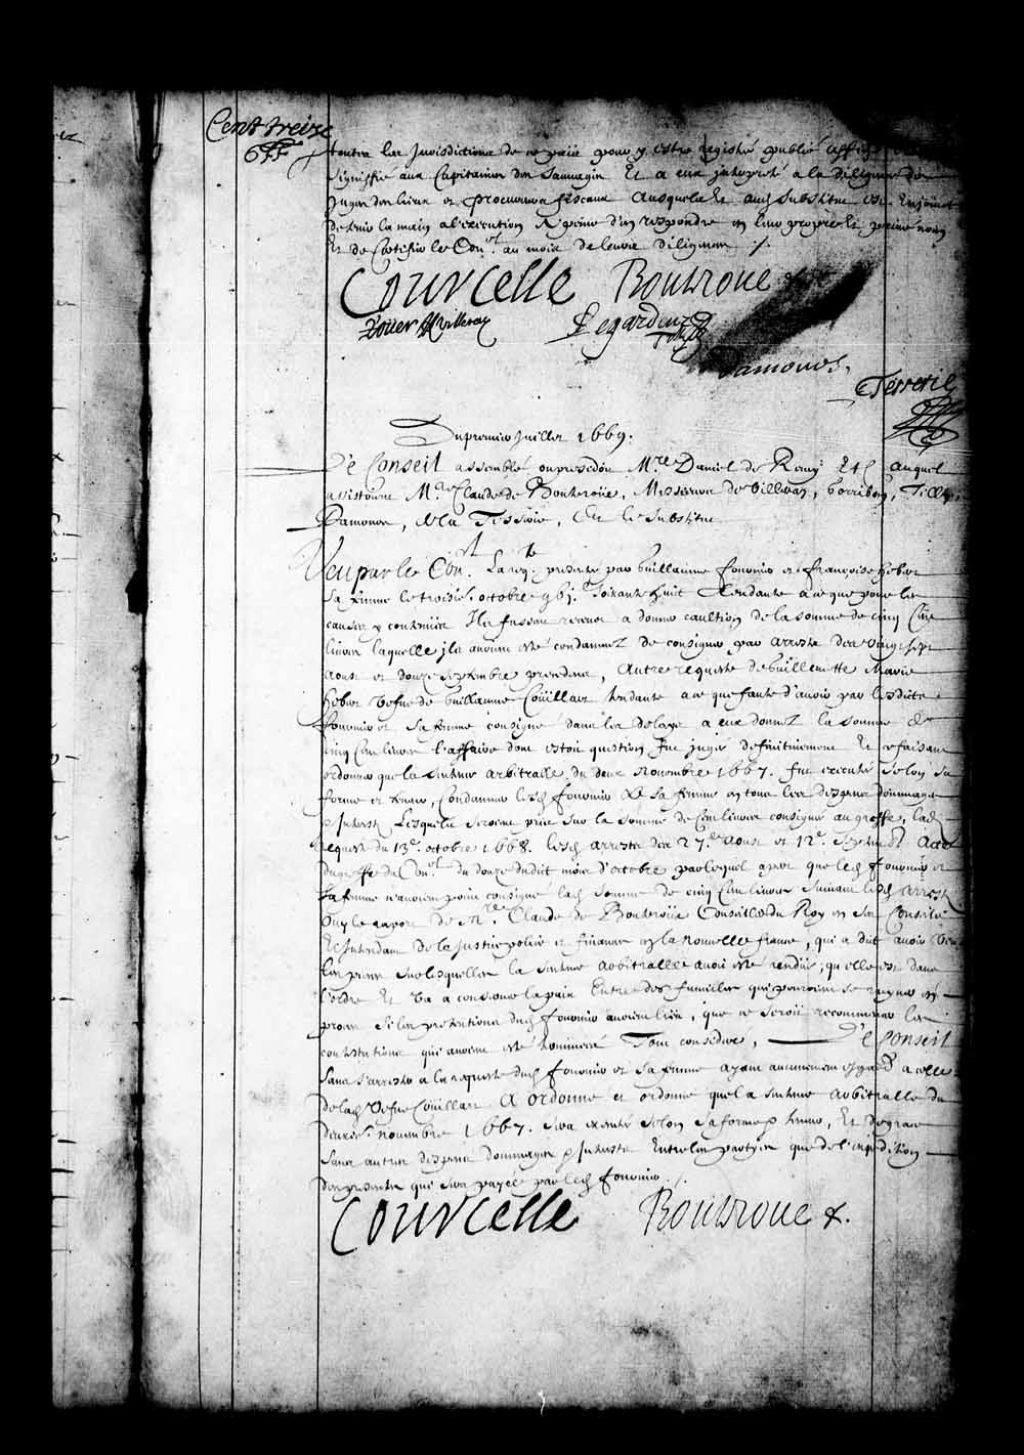 Cent treize
toutes les Jurisdictions de ce pais pour y estre registré publié affiché
signiffié aux Capitaines des sauvages Et a eux interpreté a la diligence des
Juges des lieux et procureurs fiscaux Ausquels Et aud substitut est Enjoint
de tenir la main a l'execution A peine d'en respondre en leur propre Et privé nom
Et de Certifier le Conel au mois de leurs diligences ./.
Courcelle Boutroue
Rouer de Villeray Legardeur
Tilly
Damours
CTesserie
Du premier Juillet 1669.
Le Conseil assemblé ou presidoit Mre Daniel de Remy Etc auquel
assistoient Mre Claude de Boutroüe, Messieurs de Villeray, Gorribon, Tilly,
Damours, de la Tesserie, Et le substitut
Veu par le Conel. La reqte. presentée par Guillaume fournier et françoise hebert
sa femme le troisie. octobre gbjc. soixante huit Tendante a ce que pour les
causes y contenües Ils fussent receus a donner caultion de la somme de cinq Cens
livres laquelle ils auroient esté condamnez de consigner par arrests des vingt sept
Aoust et douze septembre precedens, Autre requeste de Guillemette Marie
hebert Vefue de Guillaume Coüillart tendante a ce que faute d'auoir par lesdits
fournier et sa femme consigné dans les delays a eux donnez la somme de
cinq Cens livres l'affaire dont estoit question fut jugée definitiuement Et ce faisant
ordonner que la sentence arbitralle du deux Nouembre 1667. fut executée selon sa
forme et teneur, Condamner lesd fournier Et sa femme en tous les despens dommages
et Interests Lesquels seroient pris sur la somme de Cent livres consignée au greffe, lad
Requeste du 13e. octobre 1668. lesd arrests des 27e. Aoust et 12e. Septembre Acte
du greffe du Conel du douze dudit mois d'octobre par lequel apert que lesd fournier et
sa femme n'auroient point consigné lad somme de cinq Cens livres suiuant lesd arrests
Ouy le raport de Mre Claude de Boutroüe Conseiller du Roy en ses Conseils
Et Intendant de la Justice police et finances en la nouuelle france, qui a dit auoir Veu
les pieces sur lesquelles la sentence arbitralle auoit esté rendüe, qu'elle est dans
l'ordre Et Va a conseruer la paix Entre des familles qui pourroient se ruyner en
proces si les pretentions dud fournier auoient lieu, que ce seroit recommencer les
contestations qui auoient esté terminées Tout consideré, Le Conseil
sans s'arrester a la requeste dud fournier et sa femme ayant aucunement esgard a celle
de lad Vefue Coüillart A ordonné et ordonne que la sentence arbitralle du
deuxie. nouembre 1667. sera executée selon sa forme et teneur, Et de grace
sans autres despens dommages et Interests Entre les partyes que de l'expedition
des presentes qui sera payée par led fournier.
Courcelle Boutroue